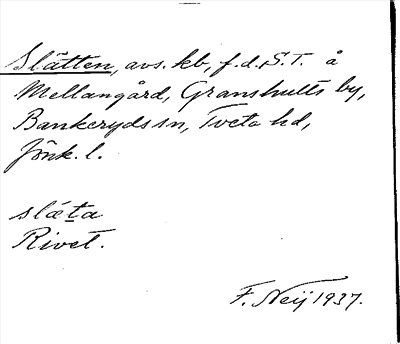 Slätten, avs. kb, f.d. S.T. å
Mellangård, Granshults by,
Bankeryds sn, Tveta hd,
Jönk. l.
slæta
Rivet.
F. Neij 1937.